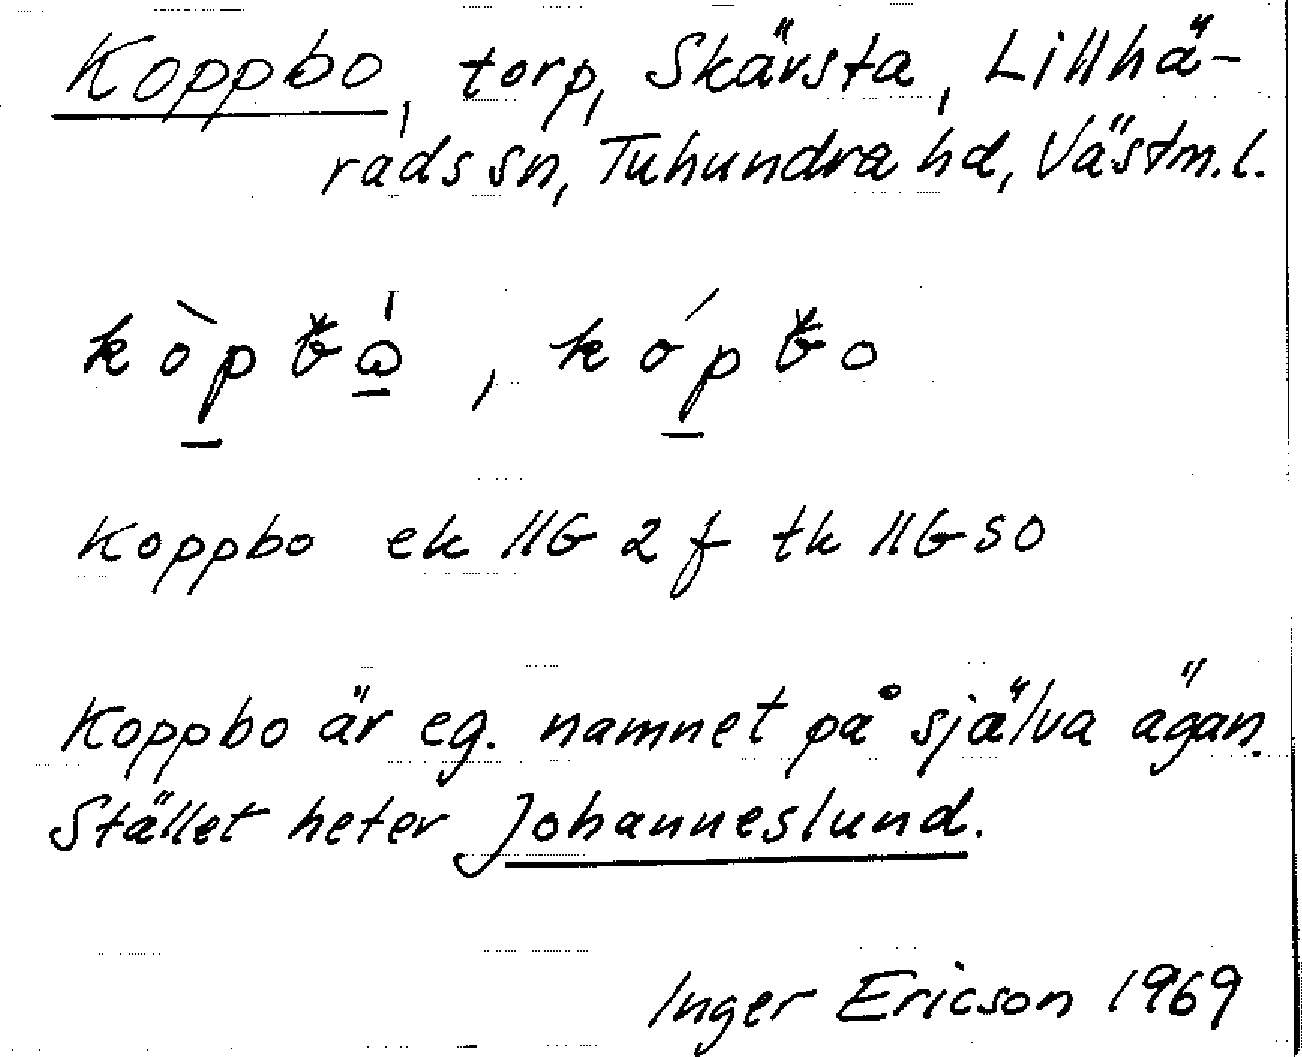 Koppbo, torp, Skärsta, Lillhä-
rads sn, Tuhundra hd, Västm. l.
Koppbo ek 11G 2f tk 11G SO
Koppbo är eg. namnet på själva ägan.
Stället heter Johanneslund.
Inger Ericson 1969